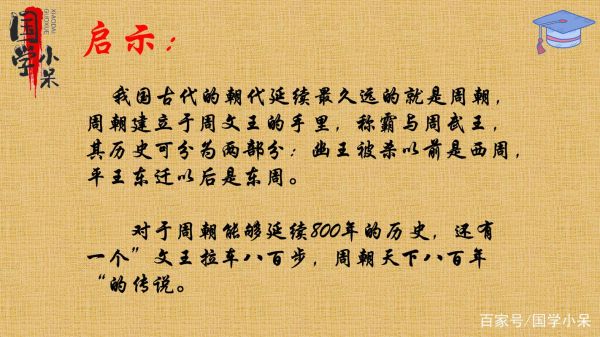 国学小呆
XIAODAI
GUOXUE
启示：
我国古代的朝代延续最久远的就是周朝，
周朝建立于周文王的手里，称霸与周武王，
其历史可分为两部分：幽王被杀以前是西周，
平王东迁以后是东周。
对于周朝能够延续800年的历史，还有
一个”文王拉车八百步，周朝天下八百年
“的传说。
百家号/国学小呆